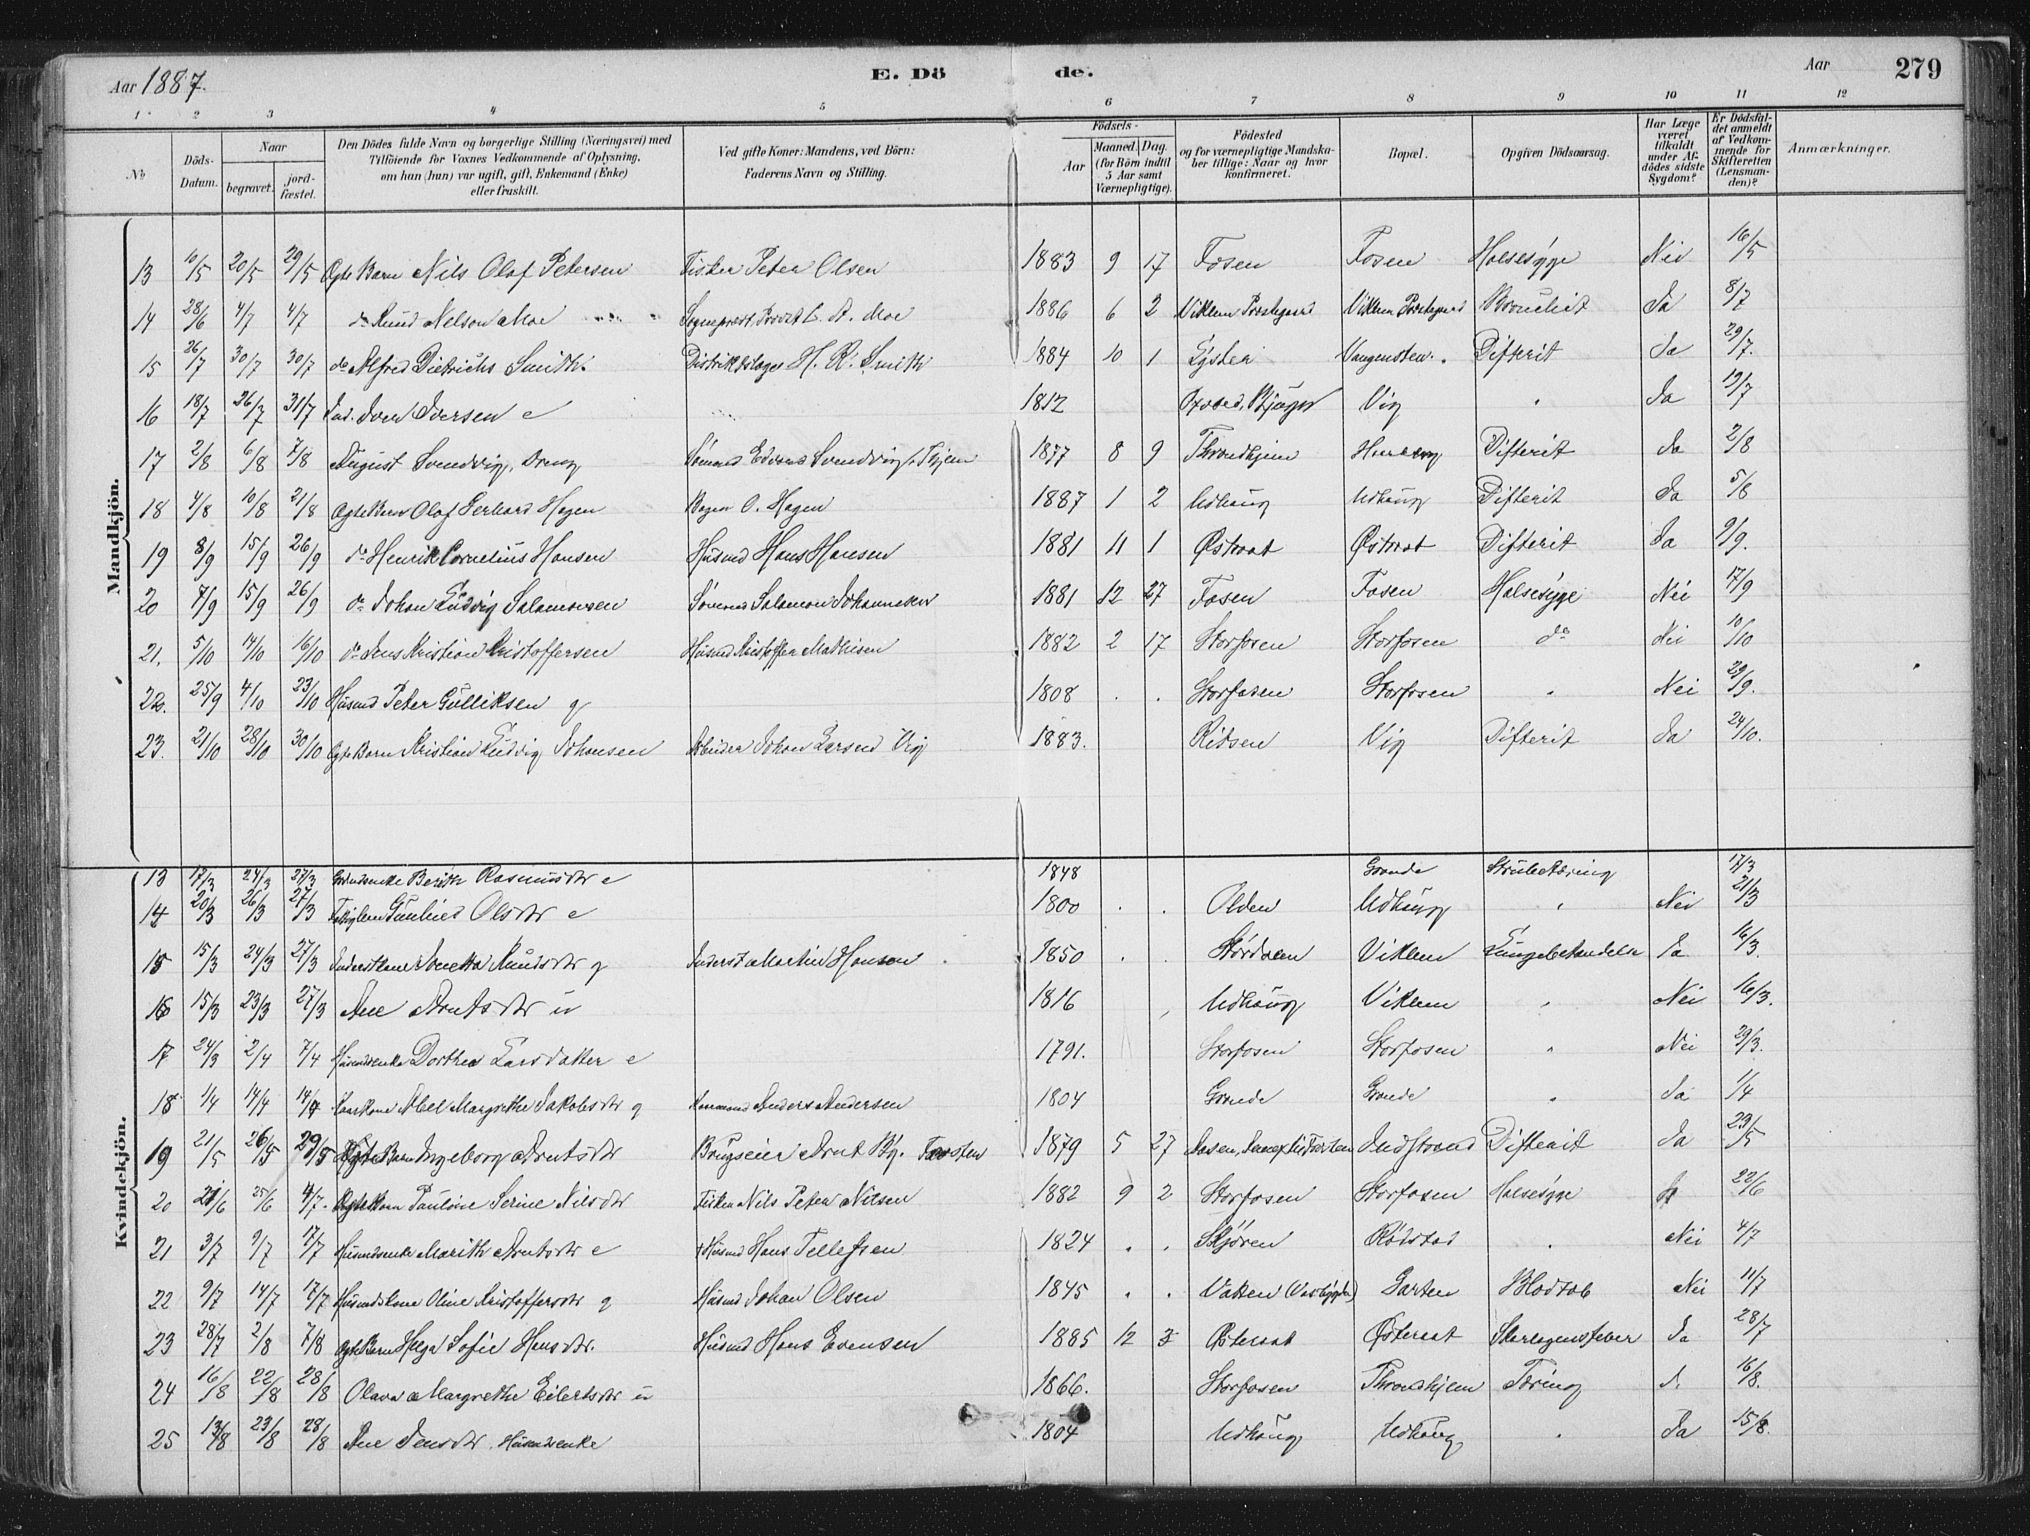 Aar 1887. E. Dö de. Aar 279
1 2 3 4 5 6 7 8 9 10 11 12
No
Döds-Datum.
Naar
begravet.
jord-fæstet.
Den Dödes fulde Navn og borgerlige Stilling (Næringsvei) med
Tilföiende for Voxnes Vedkommende af Oplysning,
om han (hun) var ugift, gift, Enkemand (Enke)
eller fraskilt.
Ved gifte Koner: Mandens, ved Börn:
Faderens Navn og Stilling.
Födsels-
Aar
Maaned. Dag.
(for Börn indtil
5 Aar samt
Værnepligtige).
Födested
og for værnepligtige Mandska-
ber tillige: Naar og hvor
konfirmeret.
Bopæl.
Opgiven Dödsaarsag.
Har Læge
været
tilkaldt
under Af-
dödes sidste
Sygdom?
Er Dödsfal-
det anmeldt
af Vedkom-
mende for
Skifteretten
(Lensman-
den)?
Anmærkninger.
Mandkjön.
13 10/5 20/5 29/5 Ægte Barn Nils Olaf Petersen Fisker Peter Olsen 1883 9 17 Fosen Fosen Halsesyge Nei 16/5
14 28/6 4/7 4/7 do Knud Nelson Moe Sogneprest, Provst L. A. Moe 1886 6 2 Viklem Præstegaard Viklem Præstegaard Bronchit Ja 8/7
15 26/7 30/7 30/7 do Alfred Dietrichs Smith. Distriktslæge H. R. Smith 1884 10 1 Lyster Vangensten. Difterit Ja 29/7.
16 18/7 26/7 31/7 Ind. Iver Iversen e 1812 Bjugn Vig " Ja 19/7
17 2/8 6/8 7/8 August Svendvig, Dreng Sömand Edvard Svendvig, Thjem 1877 8 9 Throndhjem Difterit Ja 2/8
18 4/8 10/8 21/8 Ægte Barn Olaf Gerhard Hagen Bager O. Hagen 1887 1 2 Udhaug Udhaug Difterit Ja 5/8
19 8/9 15/9 26/9 do Henrik Cornelius Hansen Husmd Hans Hansen 1881 11 1 Østraat Østraat Difterit Ja 9/9.
20 7/9 15/9 26/9 do Johan Ludvig Salamonsen Sömand Salamon Johannesen 1881 12 27 Fosen Fosen Halsesyge Nei 17/9
21. 5/10 14/10 16/10 do Jens Kristian Kristoffersen Husmd Kristoffer Mathisen 1882 2 17 Storfosen Storfosen do Nei 10/10
22. 25/9 4/10 23/10 Husmd Peter Gulliksen g 1808 . . Storfosen Storfosen " Nei 29/9.
23. 21/10 28/10 30/10 Ægte Barn Kristian Ludvig Johansen Arbeider Johan Larsen Vig 1883. Rissen Vig Difterit Ja 24/10.
Kvindekjön.
13 17/3 24/3 27/3 Berith Rasmusdtr e 1848 Grande Strubetæring 17/3
14 20/3 26/3 27/3 Fattiglem Gunhild Olsdtr e 1800 . . Olden Udhaug " Nei 21/3
15 15/3 24/3 27/3 Inderstkone Knudsdtr g Inderst Martin Hansen 1850 . . Stördalen Viklem Ja 16/3.
16 15/3 23/3 27/3 Ane Arntsdtr u 1816 Udhaug Viklem " Nei 16/3.
17 24/3 2/4 7/4 Husmdsenke Dorthea Larsdatter e 1791. Storfosen Storfosen " Nei 29/3.
18 1/4 14/4 14/4 Kaarkone Abel Margrethe Jakobsdtr g Kaarmand Anders Andersen 1804 Grande Grande " Ja 1/4
19 21/5 26/5 29/5 Ægte Barn Ingeborg Arntsdtr Brugseier Arnt By. 1879 5 27 Indstrand Difterit Ja 23/5
20 21/6 25/6 4/7. Ægte Barn Pauline Serine Nilsdtr Fisker Nils Peter Nilsen 1882 9 2 Storfosen Storfosen Halsesyge Ja 22/6
21 3/7 9/7 17/7 Husmdsenke Marith Arntsdtr e Husmd Hans Tellefsen 1824 . . Skjören Rödstad . Nei 4/7
22 9/7 14/7 17/7 Husmdskone Oline Kristoffersdtr g Husmd Johan Olsen 1845 . . Garten Blodtab Nei 11/7
23 28/7 2/8 7/8 Ægte Barn Helga Sofie Hansdtr. Husmd Hans Evensen 1885 12 3 Østeraat Østeraat Skarlagensfeber Ja 28/7
24 16/8 22/8 28/8 Olava Margrethe Eilertsdtr u 1866. Storfosen Throndhjem Tæring 16/8.
25 13/8 23/8 28/8 Ane Jensdtr Husmdsenke 1804 Udhaug Udhaug . Ja 15/8.